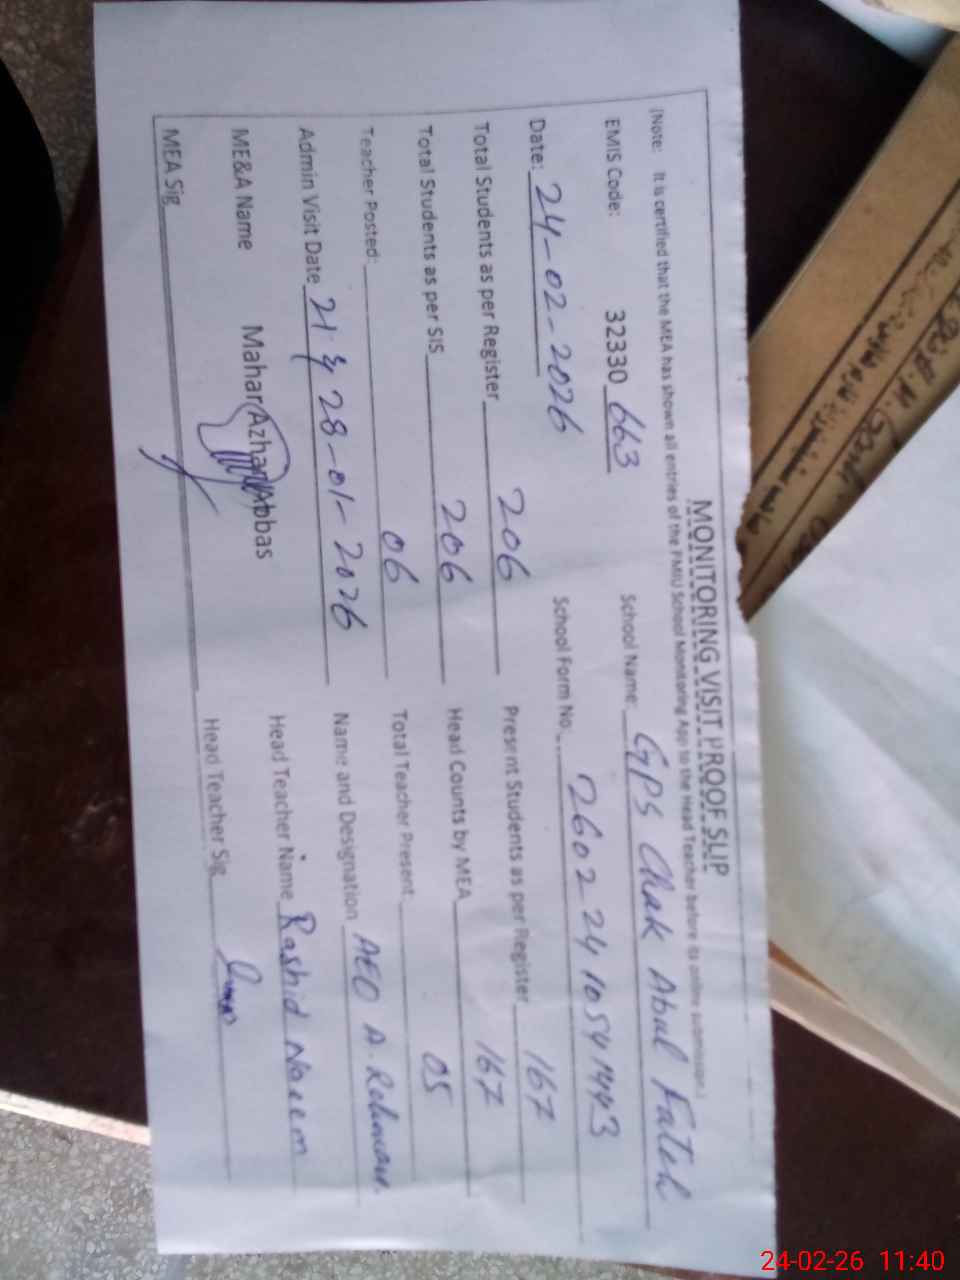 MONITORING VISIT PROOF SLIP
(Note: It is certified that the MEA has shown all entries of the PMIU School Monitoring App to the Head Teacher before its online submission)
EMIS Code: 32330 663 School Name: GPS Chak Abul Fateh
Date: 24-02-2026 School Form No: 26022410541443
Total Students as per Register 206 Present Students as per Register 167
Total Students as per SIS 206 Head Counts by MEA 167
Teacher Posted: 06 Total Teacher Present: 05
Admin Visit Date 28-01-2026 Name and Designation AEO A. Rehman.
ME&A Name Mahar Azhar Abbas Head Teacher Name Rashid Naeem
MEA Sig Head Teacher Sig
24-02-26 11:40